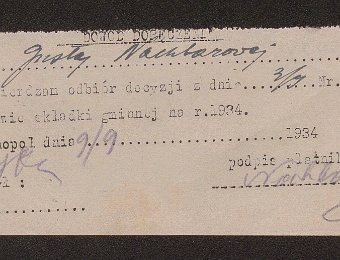 DOWÓD DORĘCZENIA
Gustaj Nachtarowej
ierdzam odbiór decyzji z dnia 3/9 Nr.
zie składki gminnej na r.1934.
nopol dnia 9/9 1934
podpis płatnik